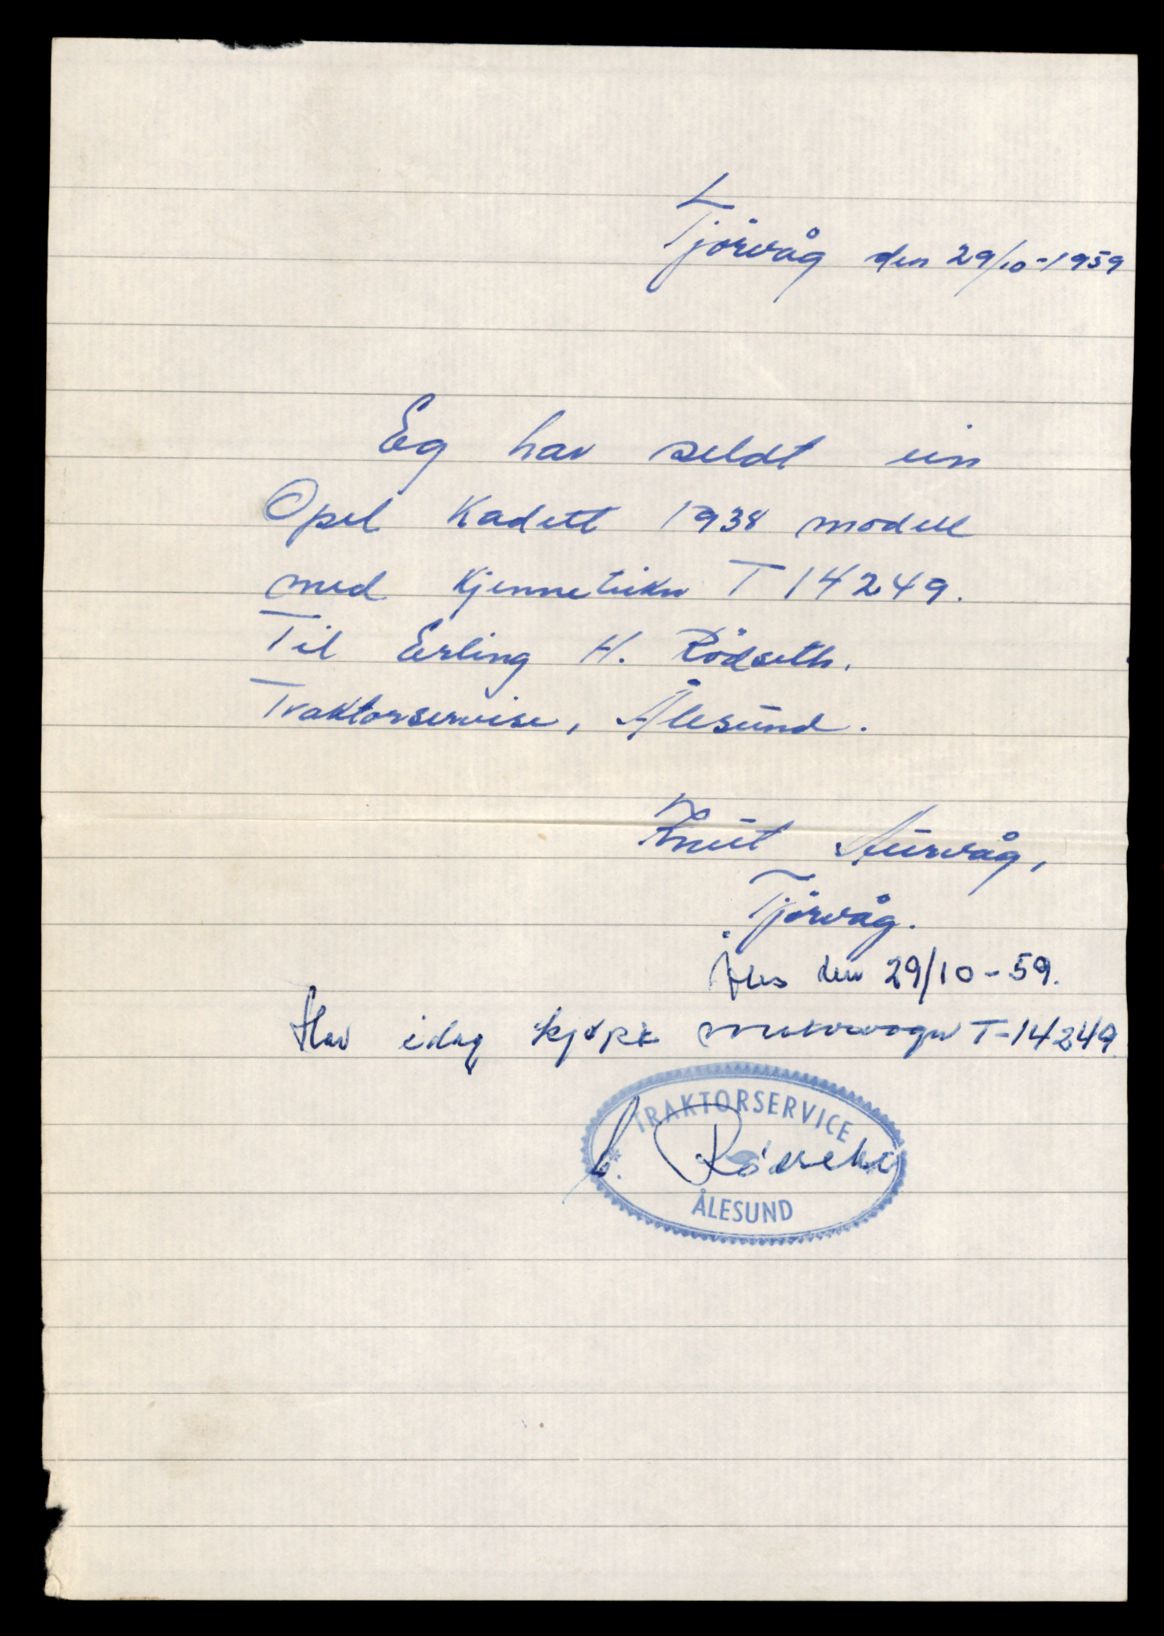 Tjörvåg den 29/10-1959
Eg hav seldt ein
Opel Kadett 1938 modell
med Kjenneteikn T 14249.
Til Erling H. Rödseth.
Traktorservise, Ålesund.
Knut Aurvåg,
Tjörvåg.
Åles den 29/10-59.
Har idag kjøpt motorvogn T-14249.
TRAKTORSERVICE
E. Rödseth
ÅLESUND